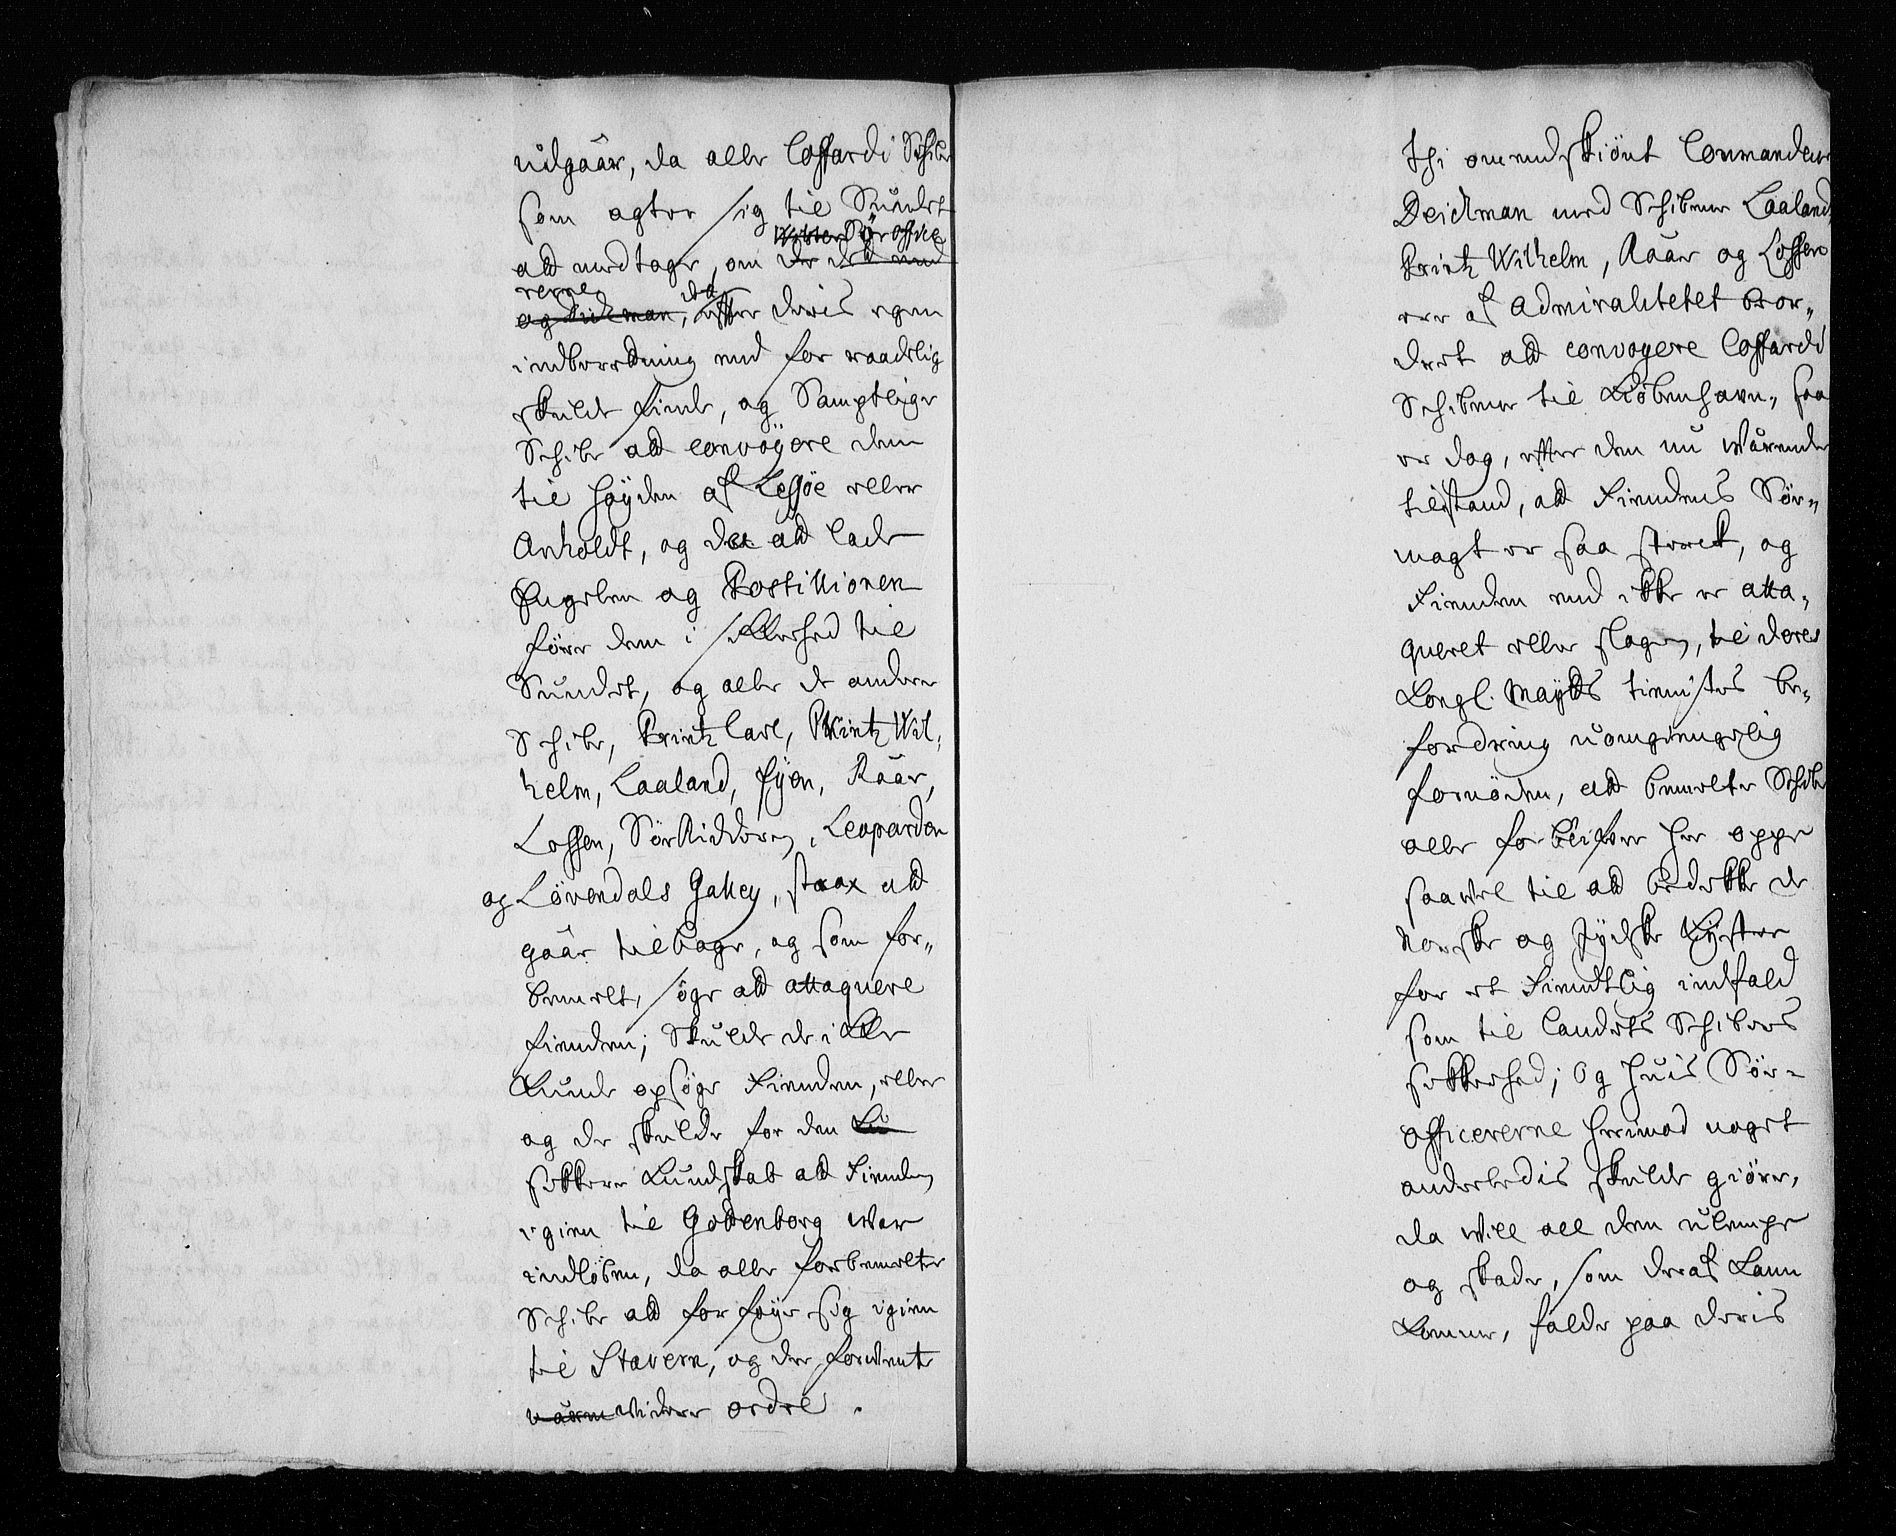 udgaar, da alle Coffardi Schibe
som agter sig til Sundet
Søe office
att medtage, om de det med
rerne
og Dickman, det efter deris egen
indberetning end for raadelig
skulde finde, og Samptlige
Schibe att convoyere dem
til høyden af Lessøe eller
Anholdt, og der att lade
Engelen og Postillionen
føre dem i sickerhed til
Sundet, og alle de andre
Schibe, Printz Carl, Printz Wil,
helm, Laaland, Fyen, Raae,
Lossen, SøeRidderen, Leoparden
og Løvendals Galley, strax att
gaae tilbage, og som for,,
bemelt, søge att attaquere
fienden; Skulde de icke
Kunde opsøge Fienden, eller
og de skulde for den
sickere Kundskab att Fienden
igien til Gottenborg war
indløben, da alle forbemelte
Schibe att forføye sig igien
til Stavern, og der forvente
widere ordre.
thi omendskiønt Commandeur
Deickman med Schibene Laaland,
Printz Wilhelm, Raae og Lossen
ere af Admiralitetet beor,,
dret att convoyere Coffardi
Schibene til Kiøbenhavn, saa
er dog, efter den nu Wærende
tilstand, att Fiendens Søe,,
magt er saa sterck, og
Fienden end icke er atta,
queret eller slagen, til deres
Kongl. Maytts tienistes be,,
fordring uomgiengelig
fornøden, att bemelte Schibe
alle forblifver her oppe
saavel til att bedecke de
Norske og Jydske Kyster
for et Fiendtlig indfald
som til Landets Schibers
sickerhed; Og huis Søe-
officererne herimod noget
anderledis skulde giøre,
da will all den ulempe
og skade, som deraf Kand
Komme, falde paa deris